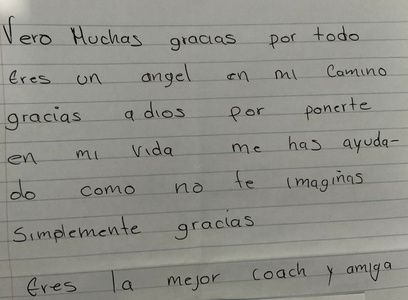 Vero Muchas gracias por todo
Eres un angel en mi Camino
gracias a dios por ponerte
en mi vida me has ayuda-
do como no te imagiñas
Simplemente gracias
Eres la mejor coach y amiga